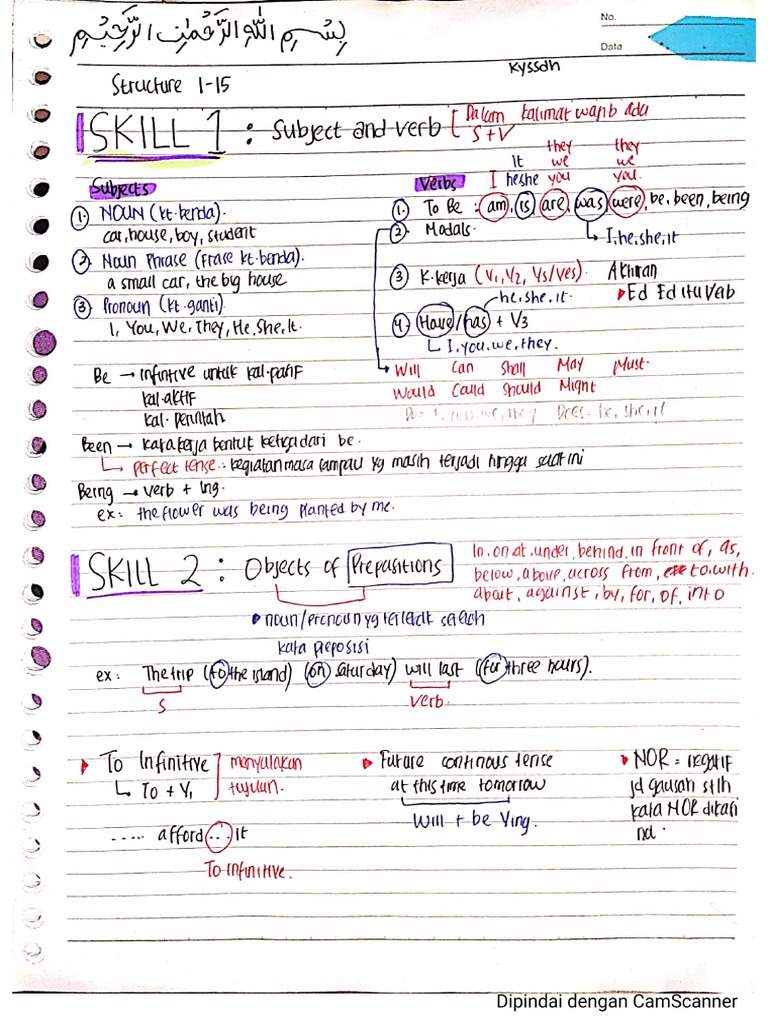 بِسْمِ اللهِ الرَّحْمٰنِ الرَّحِيْمِ
No.
Date
Kyssdh
Structure 1-15
SKILL 1 : Subject and verb [ Dalam kalimat wajib ada
S+V
Subjects
1. NOUN (kt. benda).
car, house, boy, student
2. Noun Phrase (Frase kt. benda).
a small car, the big house
3. Pronoun (kt. ganti).
I, You, We, They, He, She, It.
Verbs
they they
It we we
I he she you you.
1. To Be : am, is, are, was, were, be, been, being
I, he, she, it
2. Modals.
3. K. kerja (V1, V2, Vs/ves). Akhiran
Ed Ed itu Verb
he, she, it.
4. Have/has + V3
I, you, we, they.
Will Can Shall May Must.
Would Could Should Might
Do = I, you, we, they Does = he, she, it
Be → infinitive untuk kal. pasif
kal. aktif
kal. perintah
Been → kata kerja bentuk ketiga dari be.
perfect tense : kegiatan masa lampau yg masih terjadi hingga saat ini
Being → verb + ing.
ex : the flower was being planted by me.
SKILL 2 : Objects of Prepositions
In, on, at, under, behind, in front of, as,
below, above, across from, to, with,
about, against, by, for, of, into
noun/pronoun yg terletak setelah
kata preposisi
ex : The trip (to the island) (on saturday) will last (for three hours).
S verb.
To Infinitive ] menyatakan
To + V1 tujuan.
..... afford ... it
To infinitive.
Future continous tense
at this time tomorrow
Will + be Ving.
NOR = negatif
jd gausah
kata NOR